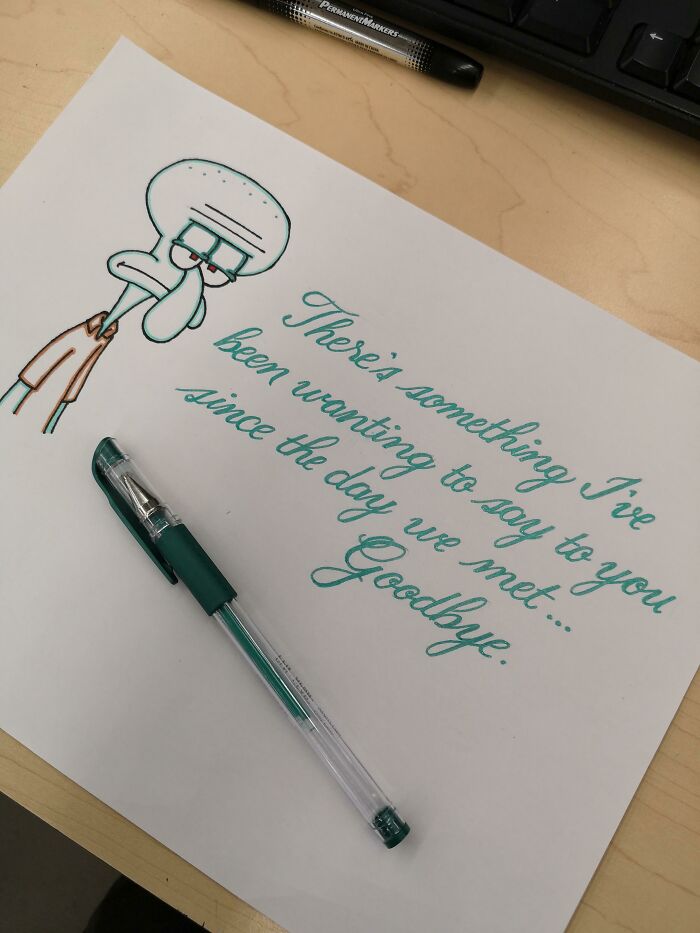 PERMANENTMARKERS
There's something I've
been wanting to say to you
since the day we met...
Goodbye.